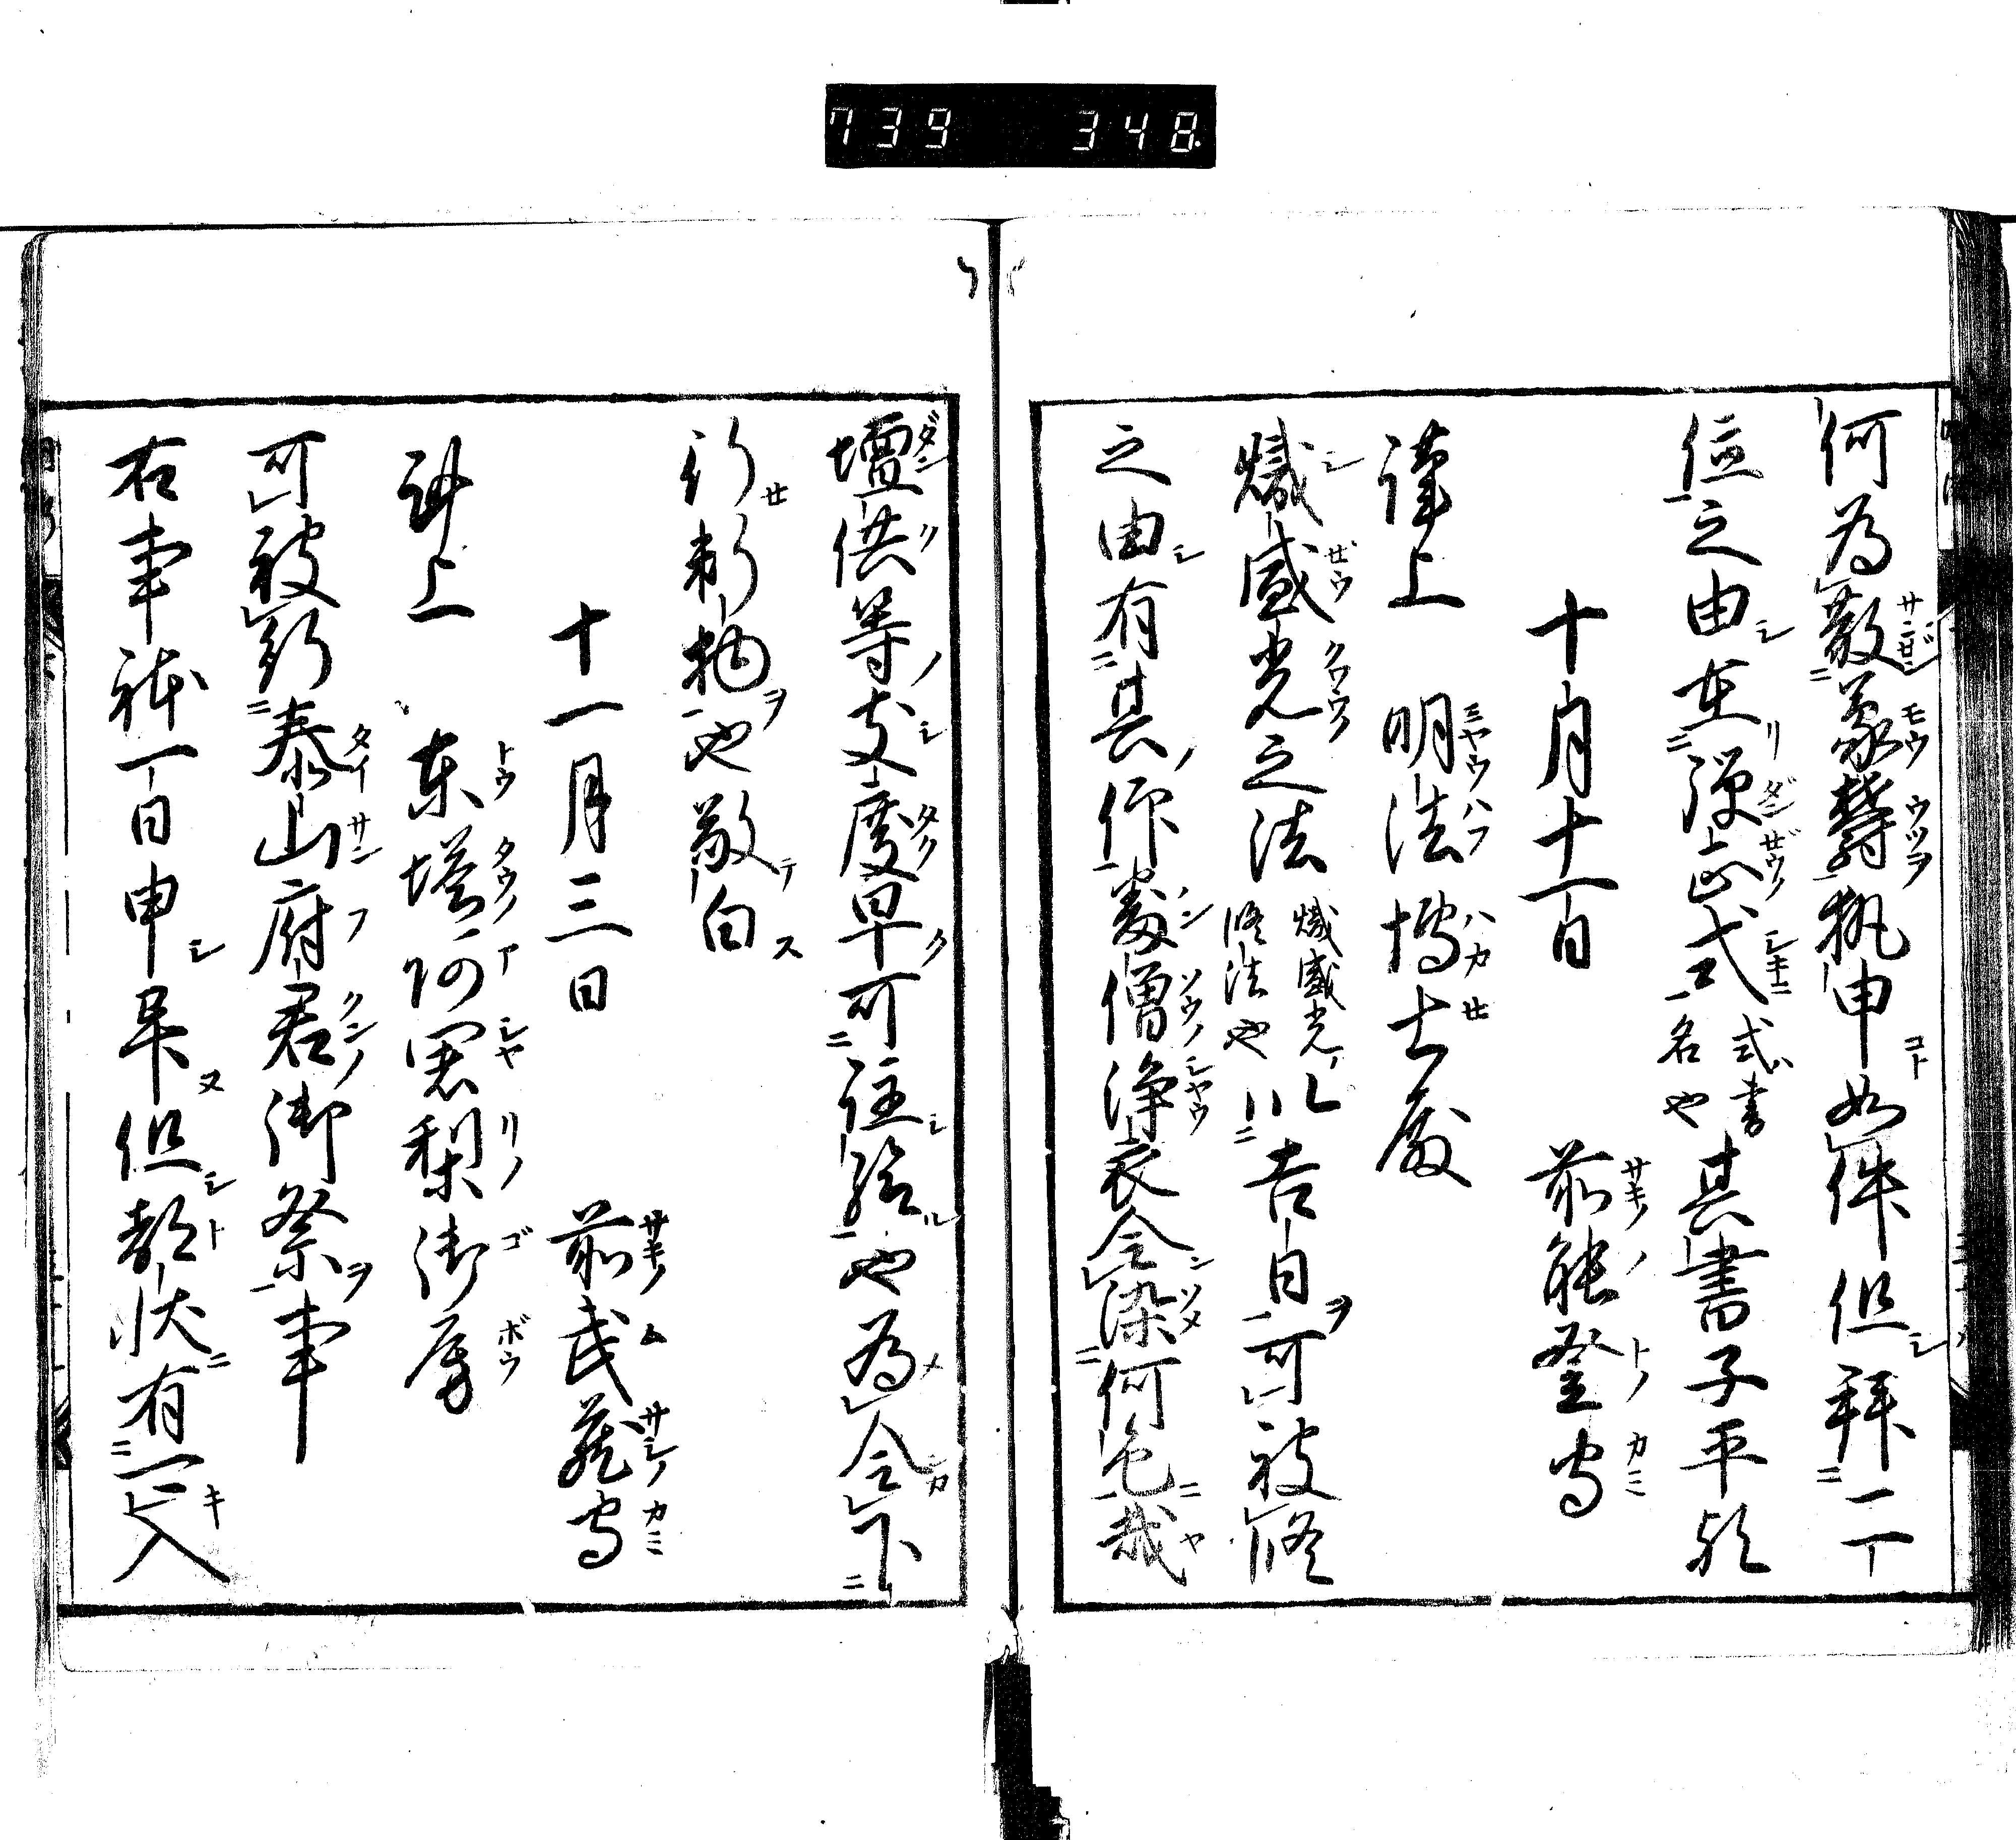 739 348
何為散蒙欝執申如件但拜二丁
位之由在弾正式式ハ書名也其書子平欤
十月十一日 前能登守
謹上 明法博士殿
熾盛光之法熾盛光ノ修法也以吉日可被修
之由有其仰數僧浄衣令染何色哉
壇供等支度早可注給也為令下
行新物也敬白
十一月三日 前武蔵守
謹上 東塔阿闍梨御房
可被行泰山府君御祭事
右事祓一日申早但都状有一入